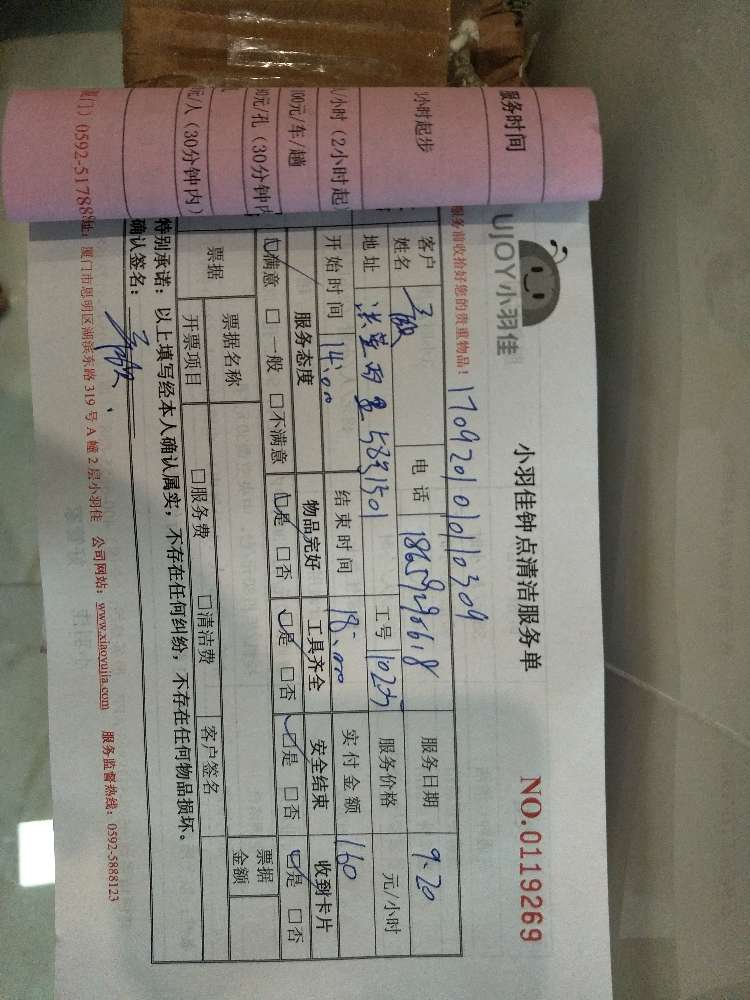 服务时间
小时起步
/小时（2小时起
100元/车/趟
30元/孔（30分钟内
元/人（30分钟内）
厦门）0592-51788
UJOY小羽佳
小羽佳钟点清洁服务单
NO.0119269
服务前收拾好您的贵重物品！
1709201010110309
客户姓名
电话
服务日期 9.20
地址
工号
服务价格 元/小时
开始时间 14:00 结束时间 18:00 实付金额 160
服务态度 物品完好 工具齐全 安全结束 收到卡片
☑满意 □一般 □不满意 ☑是 □否 ☑是 □否 ☑是 □否 ☑是 □否
票据 票据名称 客户签名 票据金额
开票项目 □服务费 □清洁费
特别承诺：以上填写经本人确认属实，不存在任何纠纷，不存在任何物品损坏。
确认签名：
址：厦门市思明区湖滨东路319号A幢2层小羽佳 公司网站：www.xiaoyujia.com 服务监督热线：0592-5888123